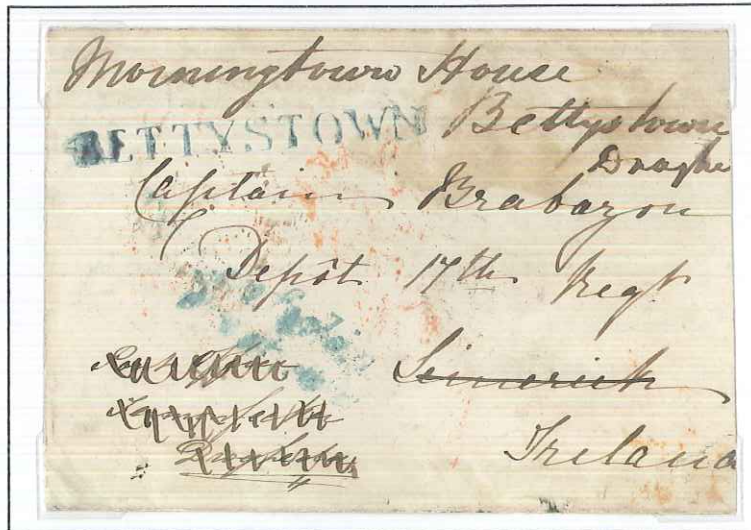 Morningtown House
BETTYSTOWN Bettystown
Draghe
Captain Brabazon
Depôt 17th Regt
Limerick
Ireland